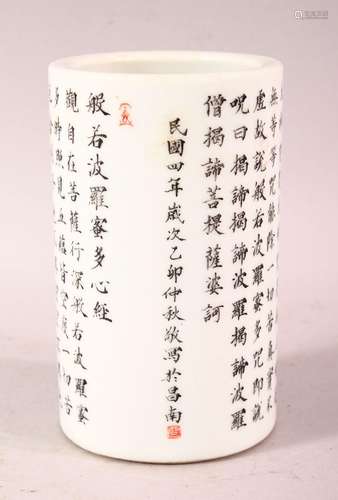 無等等咒能除一切苦真實不
虛故說般若波羅蜜多咒即說
咒曰揭諦揭諦波羅揭諦波羅
僧揭諦菩提薩婆訶
民國四年歲次乙卯仲秋敬寫於昌南
般若波羅蜜多心經
觀自在菩薩行深般若波羅蜜
多時照見五蘊皆空度一切苦